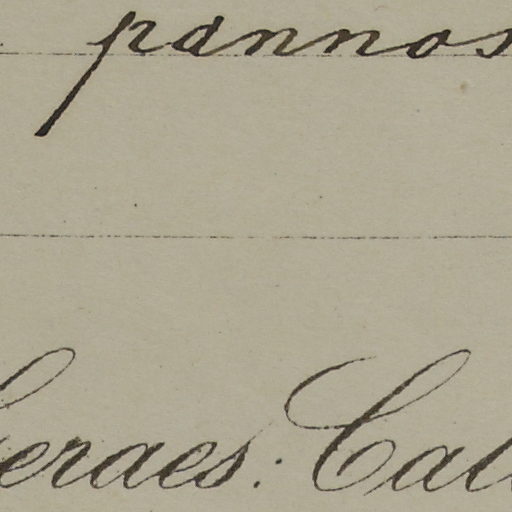 pannos
Geraes: Cal